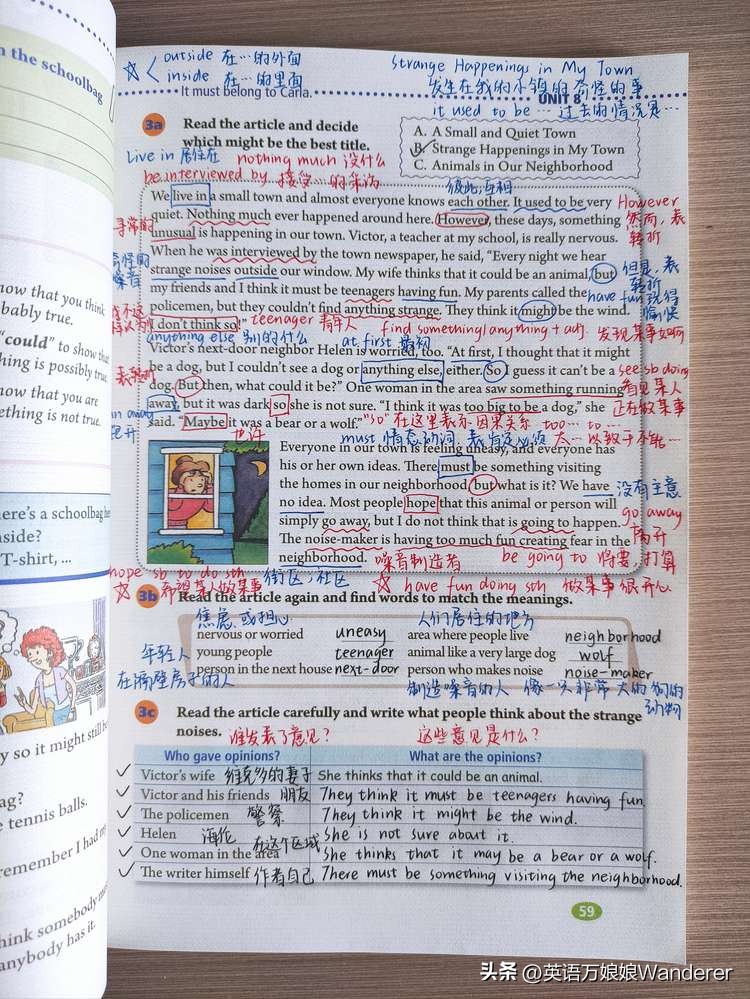 n the schoolbag
now that you think
bably true.
"could" to show that
hing is possibly true.
now that you are
ething is not true.
ere's a schoolbag here
nside?
T-shirt, ...
y so it might still be
ag?
e tennis balls.
remember I had my
hink somebody must
anybody has it.
☆ < outside 在…的外面
inside 在…的里面
Strange Happenings in My Town
发生在我的小镇的奇怪的事
It must belong to Carla.
UNIT 8
it used to be … 过去的情况是…
3a Read the article and decide
which might be the best title.
A. A Small and Quiet Town
B. Strange Happenings in My Town
C. Animals in Our Neighborhood
live in 居住在 nothing much 没什么
be interviewed by 接受…的采访
彼此;互相
We live in a small town and almost everyone knows each other. It used to be very
However
quiet. Nothing much ever happened around here. However, these days, something
然而,表
寻常的
unusual is happening in our town. Victor, a teacher at my school, is really nervous.
转折
When he was interviewed by the town newspaper, he said, "Every night we hear
噪音
strange noises outside our window. My wife thinks that it could be an animal, but
但是,表
转折
my friends and I think it must be teenagers having fun. My parents called the
have fun 玩得
愉快
policemen, but they couldn't find anything strange. They think it might be the wind.
I don't think so!"
teenager 青年人 find something/anything + adj. 发现某事如何
anything else 别的什么 at first 最初
Victor's next-door neighbor Helen is worried, too. "At first, I thought that it might
be a dog, but I couldn't see a dog or anything else, either. So I guess it can't be a
see sb doing
表转折
dog. But then, what could it be?" One woman in the area saw something running
看见某人
正在做某事
away, but it was dark so she is not sure. "I think it was too big to be a dog," she
said. "Maybe it was a bear or a wolf."
"so"在这里表示因果关系 too… to…
也许
must 情态动词,表肯定必须 太…以致于不能…
Everyone in our town is feeling uneasy, and everyone has
his or her own ideas. There must be something visiting
the homes in our neighborhood, but what is it? We have
没有主意
no idea. Most people hope that this animal or person will
go away
simply go away, but I do not think that is going to happen.
离开
The noise-maker is having too much fun creating fear in the
neighborhood.
噪音制造者 be going to 将要,打算
hope sb to do sth 街区;社区
希望某人做某事 ☆ have fun doing sth 做某事很开心
☆ 3b Read the article again and find words to match the meanings.
焦虑或担心 人们居住的地方
nervous or worried uneasy area where people live neighborhood
年轻人
young people teenager animal like a very large dog wolf
person in the next house next-door person who makes noise noise-maker
在隔壁房子的人 制造噪音的人 像一只非常大的狗的
动物
3c Read the article carefully and write what people think about the strange
noises. 谁发表了意见? 这些意见是什么?
Who gave opinions? What are the opinions?
✓ Victor's wife 维克多的妻子 She thinks that it could be an animal.
✓ Victor and his friends 朋友 They think it must be teenagers having fun.
✓ The policemen 警察 They think it might be the wind.
✓ Helen 海伦 She is not sure about it.
在这个区域
✓ One woman in the area She thinks that it may be a bear or a wolf.
✓ The writer himself 作者自己 There must be something visiting the neighborhood.
59
头条 @英语万娘娘Wanderer